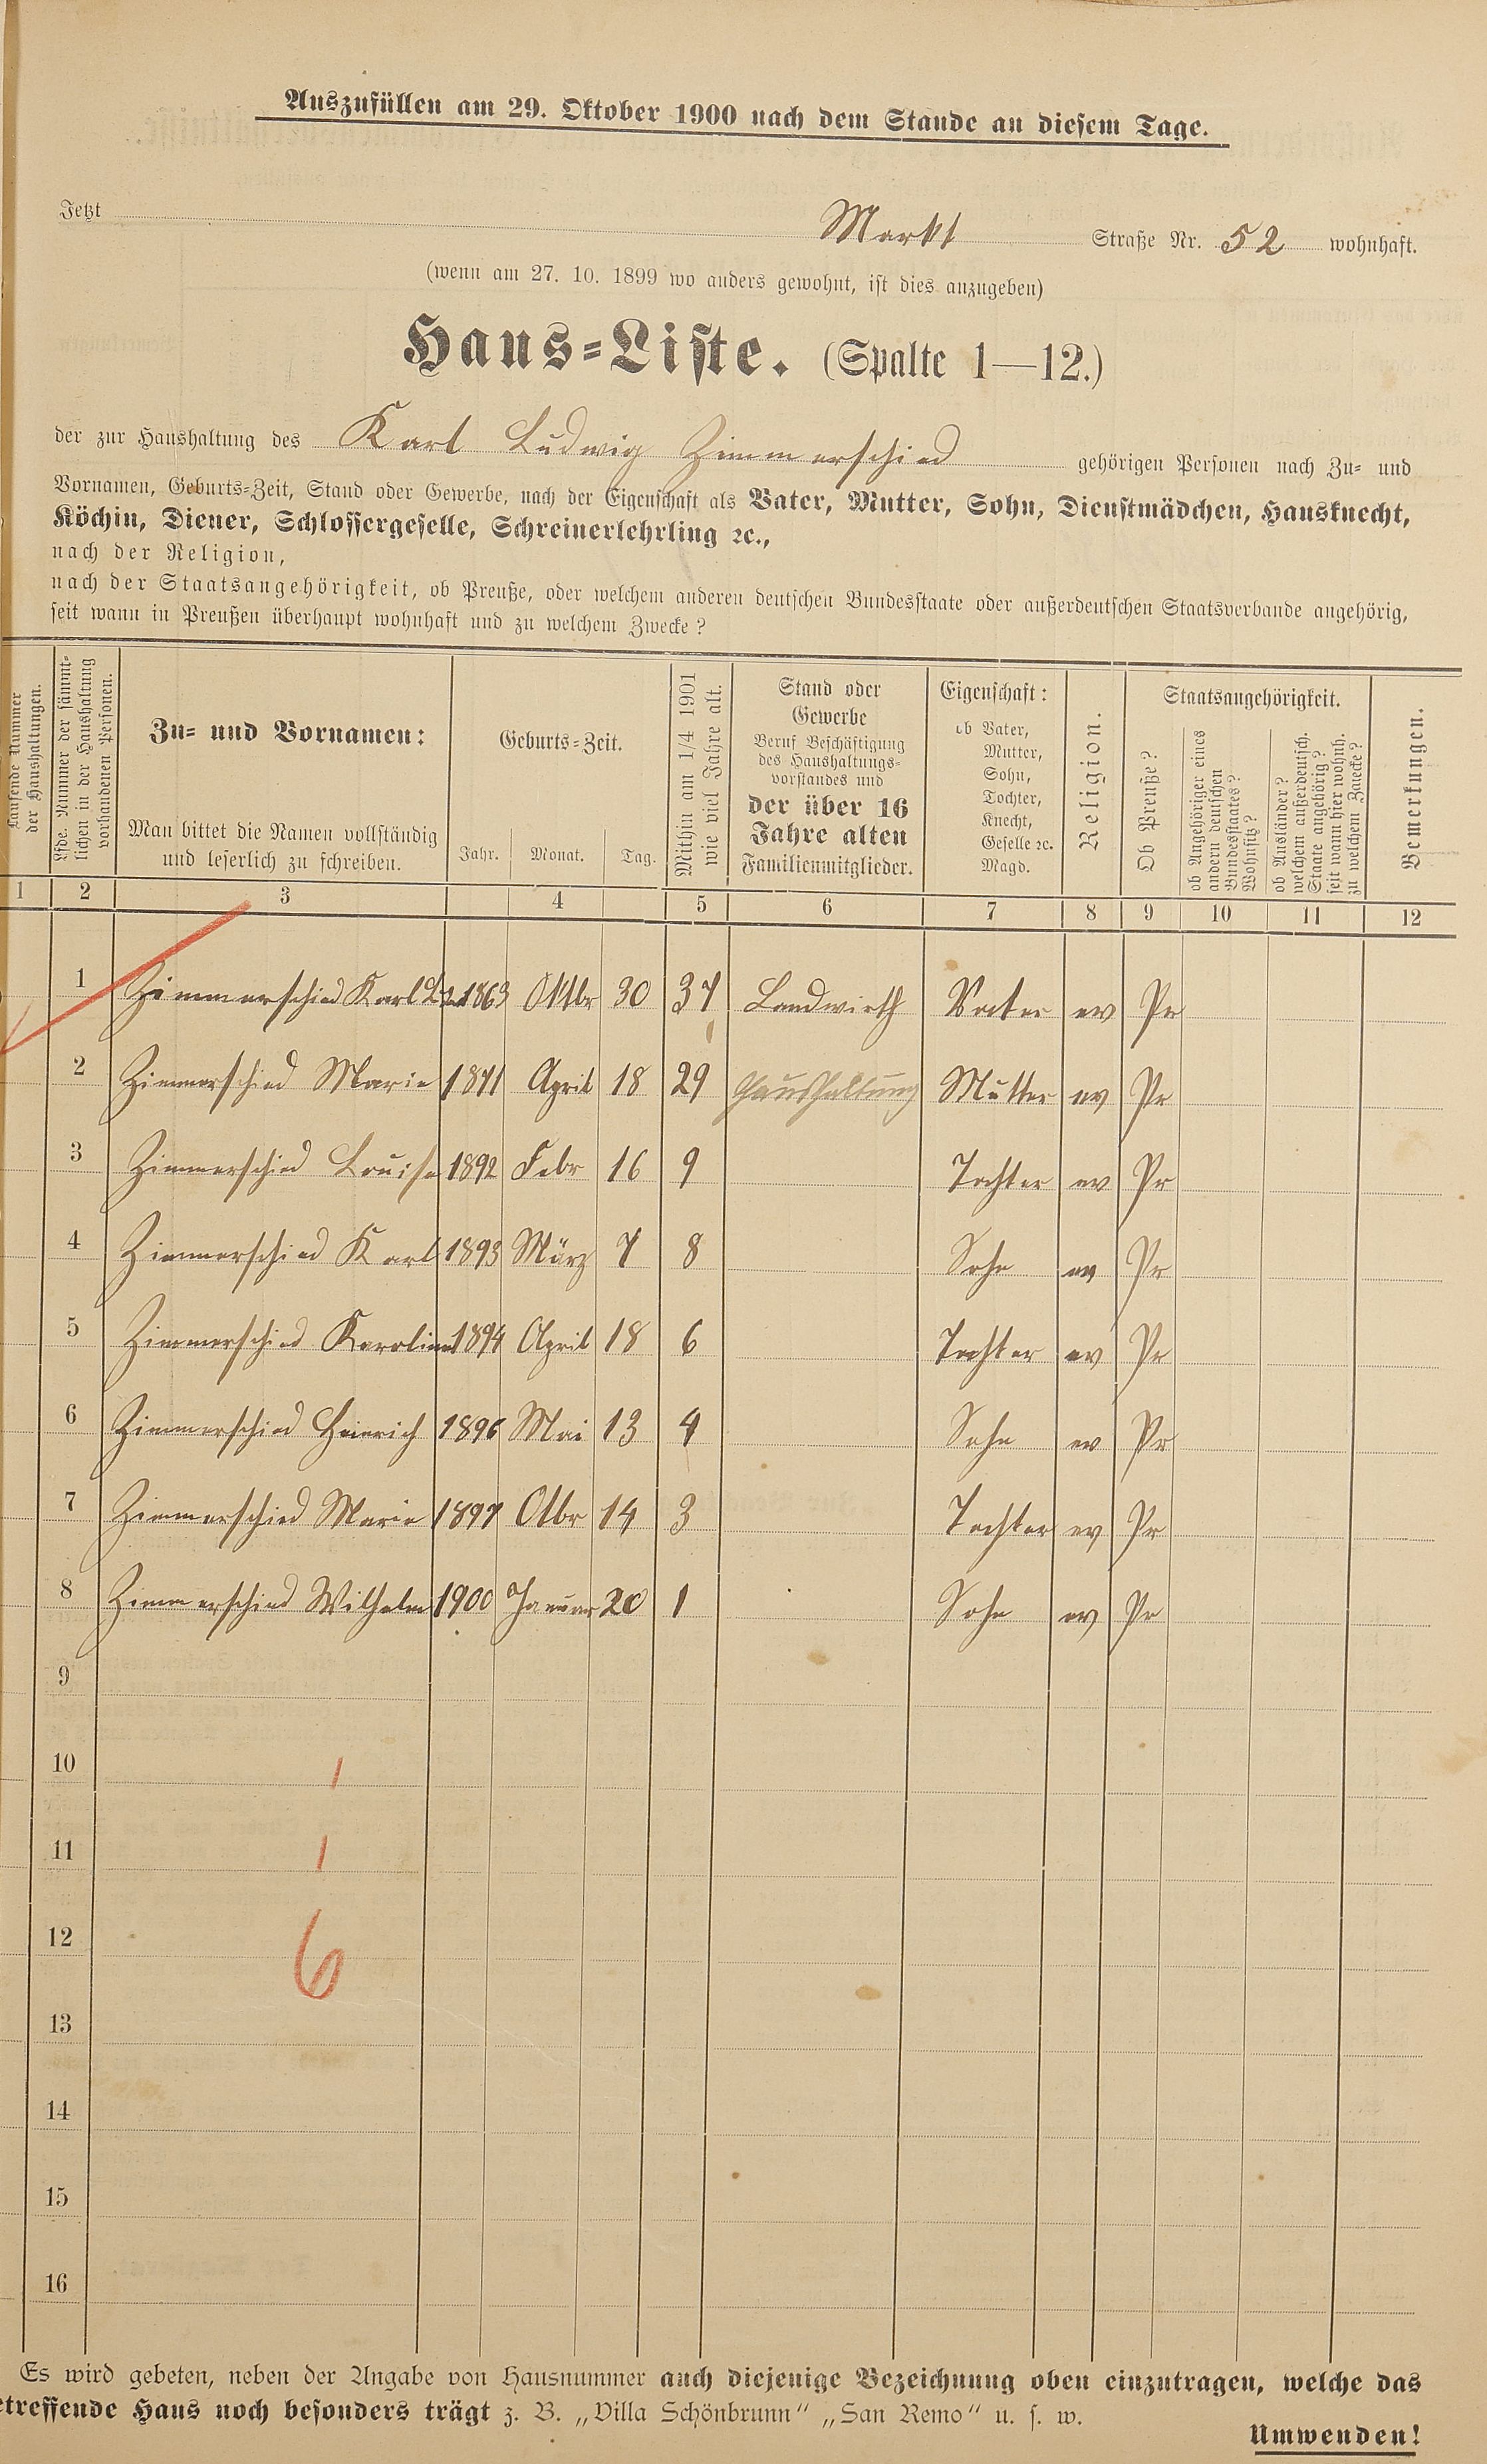 Auszufüllen am 29. Oktober 1900 nach dem Stande an diesem Tage.
Jetzt Markt Straße Nr. 52 wohnhaft.
(wenn am 27. 10. 1899 wo anders gewohnt, ist dies anzugeben)
Haus-Liste. (Spalte 1—12.)
der zur Haushaltung des Karl Ludwig Zimmerschied gehörigen Personen nach Zu- und
Vornamen, Geburts-Zeit, Stand oder Gewerbe, nach der Eigenschaft als Vater, Mutter, Sohn, Dienstmädchen, Hausknecht,
Köchin, Diener, Schlossergeselle, Schreinerlehrling ꝛc.,
nach der Religion,
nach der Staatsangehörigkeit, ob Preuße, oder welchem anderen deutschen Bundesstaate oder außerdeutschen Staatsverbande angehörig,
seit wann in Preußen überhaupt wohnhaft und zu welchem Zwecke?
Laufende Nummer
der Haushaltungen.
Lfde. Nummer der sämmt-
lichen in der Haushaltung
vorhandenen Personen.
Zu- und Vornamen:
Man bittet die Namen vollständig
und leserlich zu schreiben.
Geburts-Zeit.
Jahr. Monat. Tag.
Mithin am 1/4 1901
wie viel Jahre alt.
Stand oder
Gewerbe
Beruf Beschäftigung
des Haushaltungs-
vorstandes und
der über 16
Jahre alten
Familienmitglieder.
Eigenschaft:
ob Vater,
Mutter,
Sohn,
Tochter,
Knecht,
Geselle ꝛc.
Magd.
Religion.
Staatsangehörigkeit.
Ob Preuße?
ob Angehöriger eines
andern deutschen
Bundesstaates?
Wohnsitz?
ob Ausländer?
welchem außerdeutsch.
Staate angehörig?
seit wann hier wohnh.
zu welchem Zwecke?
Bemerkungen.
1 2 3 4 5 6 7 8 9 10 11 12
1 Zimmerschied Karl 1863 Oktbr 30 37 Landwirth Vater ev Pr
2 Zimmerschied Marie 1871 April 18 29 Haushaltung Mutter ev Pr
3 Zimmerschied Louise 1892 Febr 16 9 Tochter ev Pr
4 Zimmerschied Karl 1893 März 7 8 Sohn ev Pr
5 Zimmerschied Karoline 1894 April 18 6 Tochter ev Pr
6 Zimmerschied Heinrich 1896 Mai 13 4 Sohn ev Pr
7 Zimmerschied Marie 1897 Otbr 14 3 Tochter ev Pr
8 Zimmerschied Wilhelm 1900 Januar 20 1 Sohn ev Pr
9
10 1
11 1
12 6
13
14
15
16
Es wird gebeten, neben der Angabe von Hausnummer auch diejenige Bezeichnung oben einzutragen, welche das
etreffende Haus noch besonders trägt z. B. „Villa Schönbrunn“ „San Remo“ u. s. w.
Umwenden!